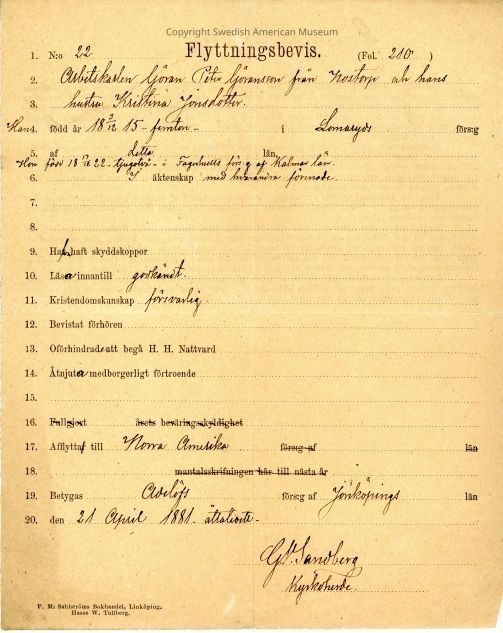 Copyright Swedish American Museum
Flyttningsbevis.
1. N:o 22 (Fol. 210)
2. Arbetskarlen Göran Peter Göransson från och hans
3. hustru Kristina Jonsdotter.
Han 4. född år 18 3/12 15 - femton - i Lommaryds förs:g
5. af detta län
Hon född 18 22 - i förs:g af Kalmar län.
6. I äktenskap med hvarandra förenade.
7.
8.
9. Hafva haft skyddskoppor
10. Läsa innantill godkändt.
11. Kristendomskunskap försvarlig.
12. Bevistat förhören
13. Oförhindrade att begå H. H. Nattvard
14. Åtnjuta medborgerligt förtroende
15.
16. Fullgjort årets beväringsskyldighet
17. Afflytta till Norra Amerika förs:g af län
18. mantalsskrifningen här till nästa år
19. Betygas Adelöfs förs:g af Jönköpings län
20. den 21 April 1881 - åttatioett -
G. Sandberg
Kyrkoherde.
P. M. Sahlströms Bokhandel, Linköping.
Hasse W. Tullberg.